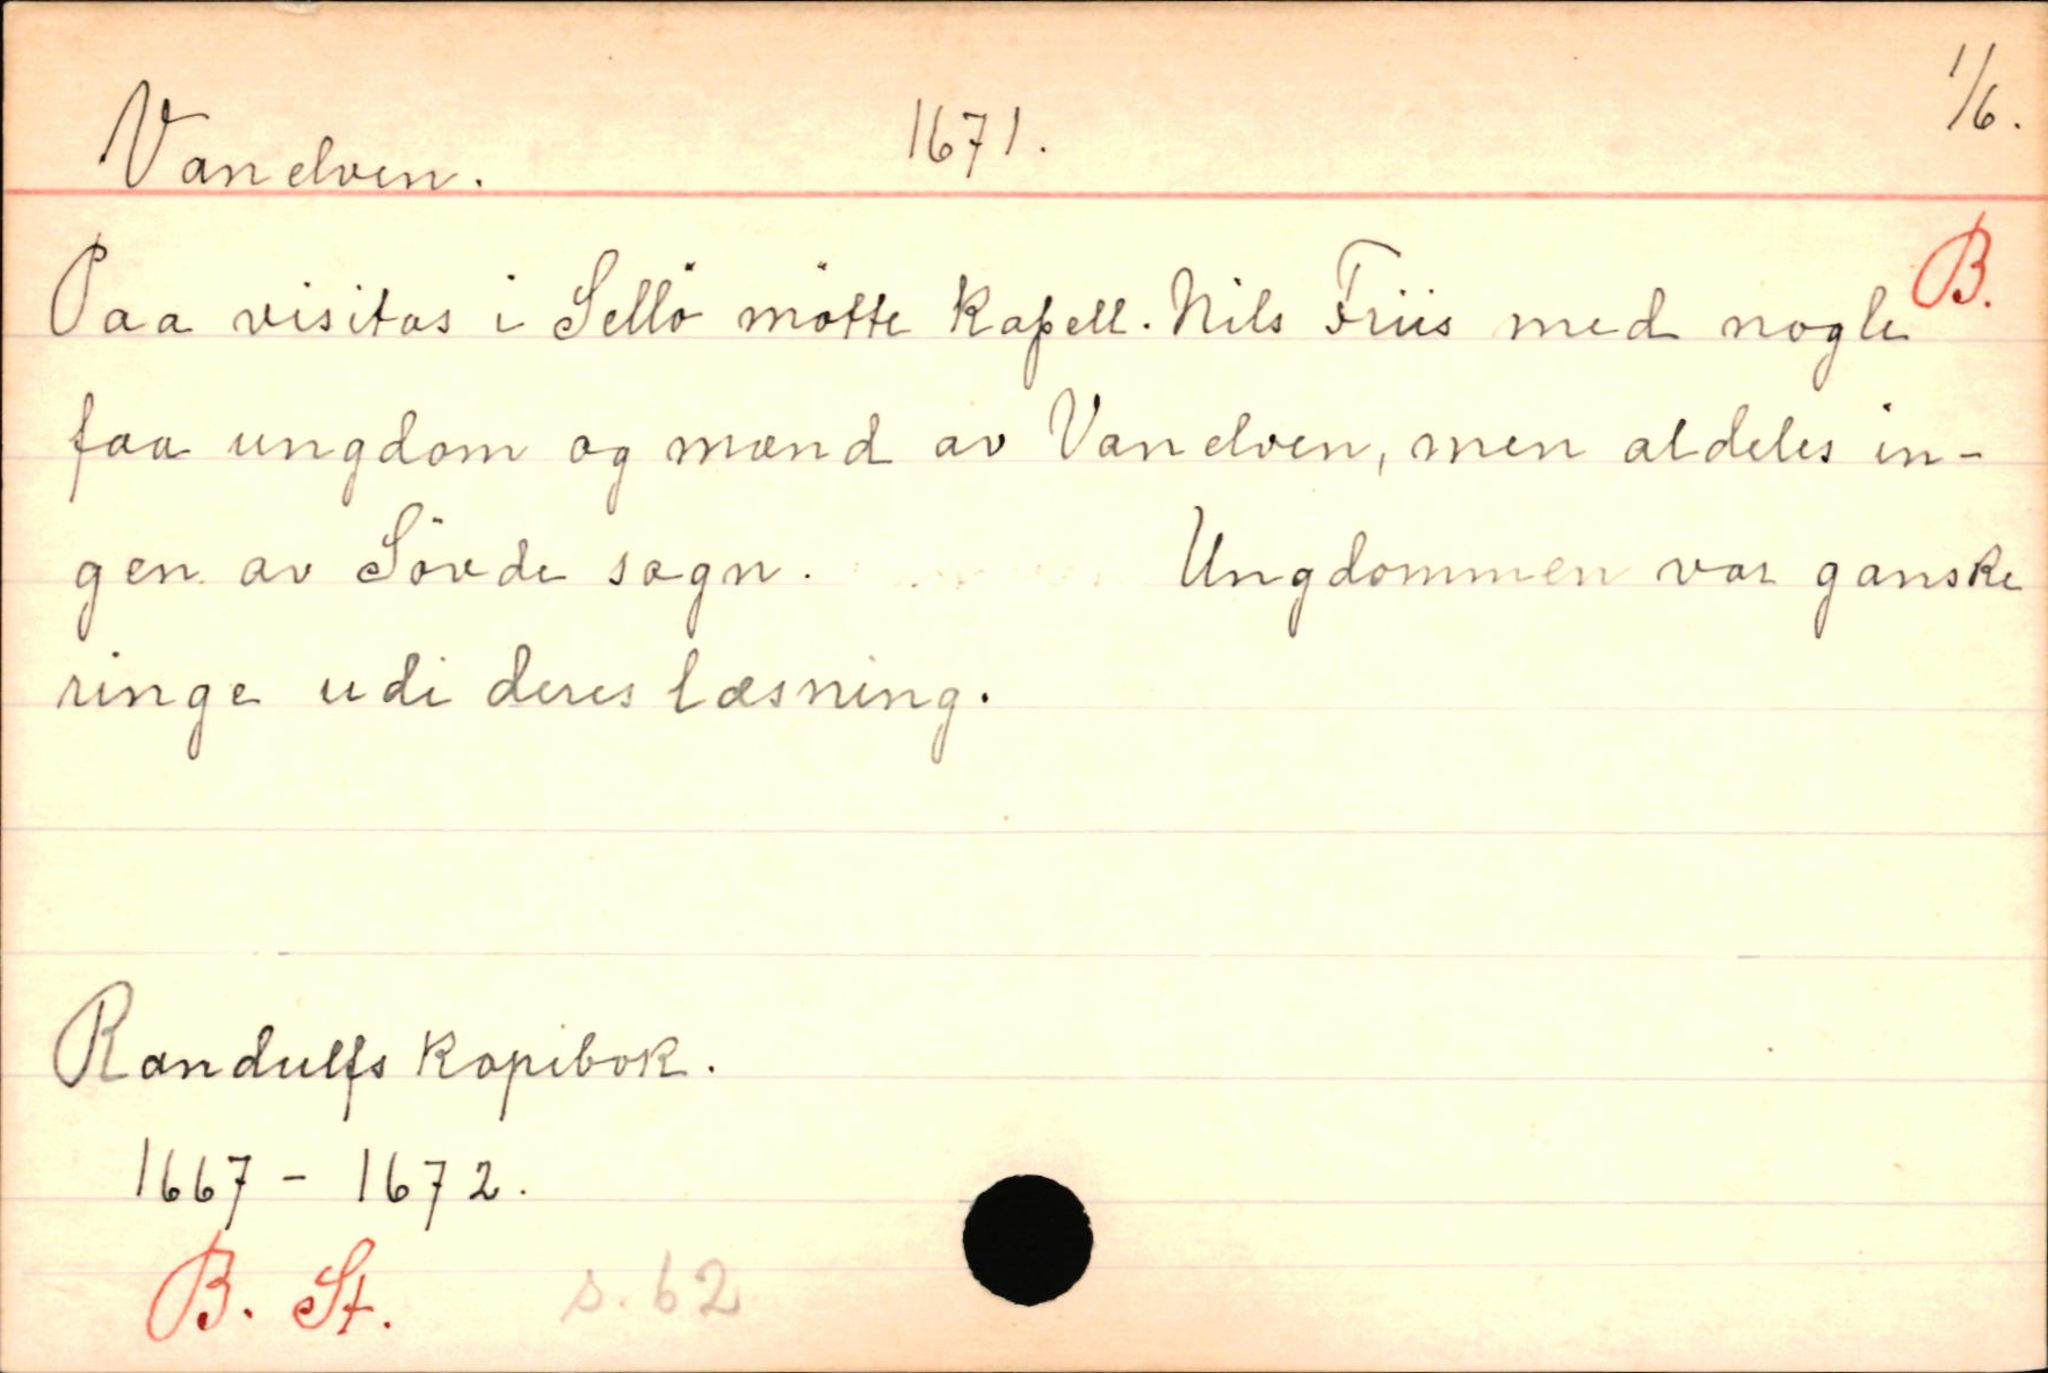 Vanelven. 1671. 1/6.
B.
Paa visitas i Sellö mötte Kapell. Nils Friis med nogle
faa ungdom og mænd av Vanelven, men aldeles in-
gen av Sövde sogn. Ungdommen var ganske
ringe udi deres læsning.
Randulfs Kopibok.
1667 - 1672.
B. St. s. 62